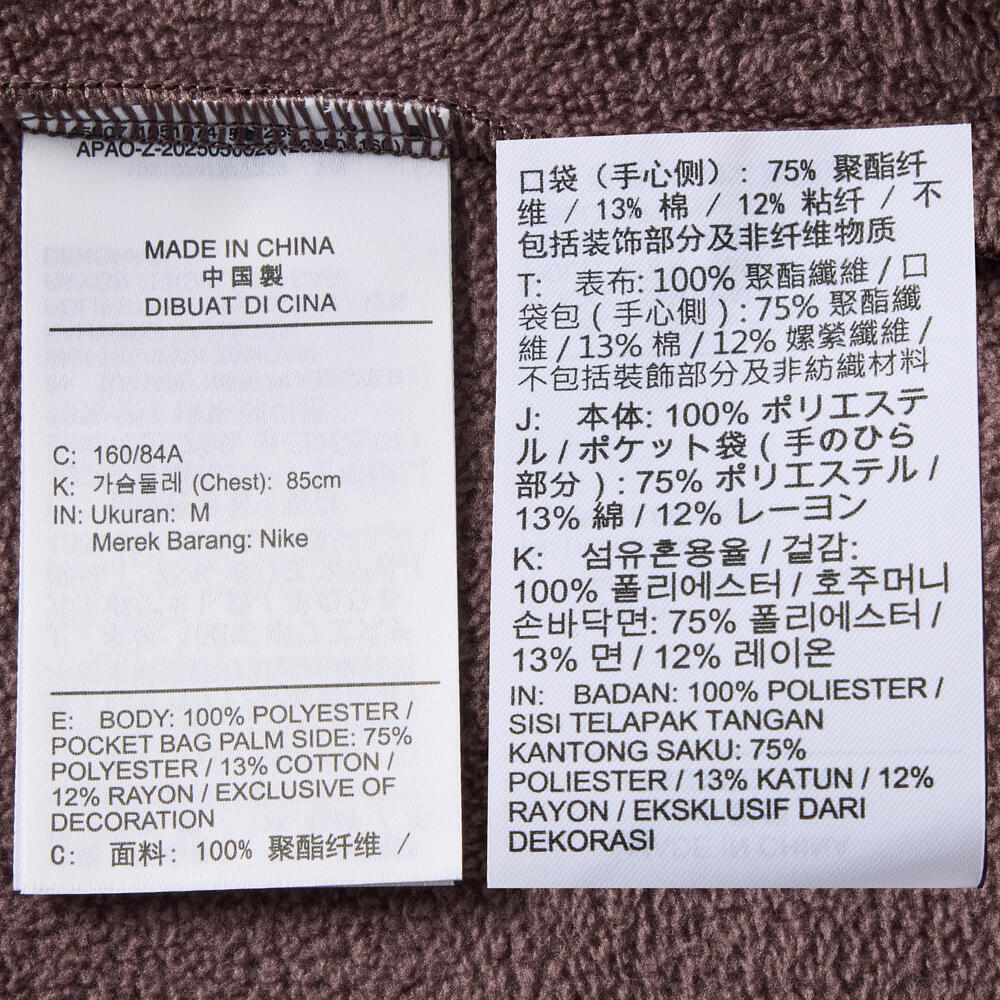 MADE IN CHINA
中国製
DIBUAT DI CINA
C: 160/84A
K: 가슴둘레 (Chest): 85cm
IN: Ukuran: M
Merek Barang: Nike
E: BODY: 100% POLYESTER /
POCKET BAG PALM SIDE: 75%
POLYESTER / 13% COTTON /
12% RAYON / EXCLUSIVE OF
DECORATION
C: 面料: 100% 聚酯纤维 /
口袋（手心侧）: 75% 聚酯纤
维 / 13% 棉 / 12% 粘纤 / 不
包括装饰部分及非纤维物质
T: 表布: 100% 聚酯纖維 / 口
袋包 ( 手心側 ) : 75% 聚酯纖
維 / 13% 棉 / 12% 嫘縈纖維 /
不包括裝飾部分及非紡織材料
J: 本体: 100% ポリエステ
ル / ポケット袋 ( 手のひら
部分 ) : 75% ポリエステル /
13% 綿 / 12% レーヨン
K: 섬유혼용율 / 겉감:
100% 폴리에스터 / 호주머니
손바닥면: 75% 폴리에스터 /
13% 면 / 12% 레이온
IN: BADAN: 100% POLIESTER /
SISI TELAPAK TANGAN
KANTONG SAKU: 75%
POLIESTER / 13% KATUN / 12%
RAYON / EKSKLUSIF DARI
DEKORASI